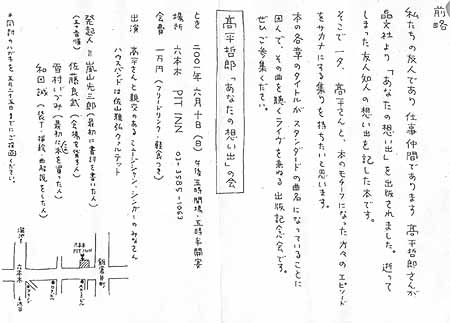 前略
私たちの友人であり 仕事仲間であります 髙平哲郎さんが
晶文社より「あなたの想い出」を出版されました。逝って
しまった友人知人の想い出を記した本です。
そこで一夕、髙平さんと、本のモチーフになった方々のエピソード
をサカナにする集りを持ちたいと思います。
本の各章のタイトルがスタンダードの曲名になっていることに
因んで、その曲を聴くライヴを兼ねる 出版記念会です。
ぜひご参集ください。
髙平哲郎「あなたの想い出」の会
とき 二〇〇一年 六月十日(日) 午後五時開場、五時半開宴
場所 六本木 PIT INN 03-3585-1063
会費 一万円(フリードリンク・軽食つき)
出演 髙平さんと親交のあるミュージシャン、シンガーのみなさん
ハウスバンドは佐山雅弘クァルテット
発起人 嵐山光三郎(最初に書評を書いた人)
(五十音順) 佐藤良武(会場を貸す人)
菅村いづみ(最初に本を買った人)
和田誠(装丁・挿絵・曲解説をした人)
*同封のハガキを五月二十五日までにご投函ください。
飯倉片町
六本木
PIT INN
六本木
溜池
渋谷